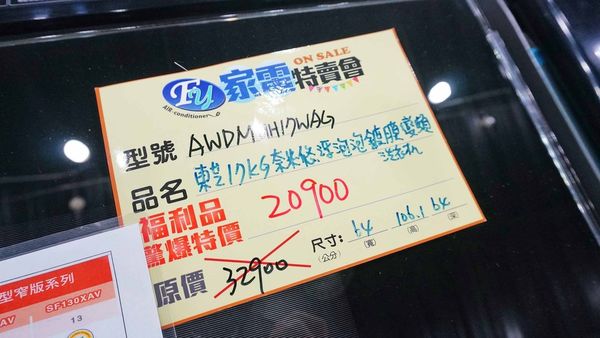 ON SALE
FY 家電特賣會
AIR-conditioner
型號 AWDM H17WAG
品名 東芝17KG奈米悠浮泡泡鍍膜變頻
洗衣機
福利品
驚爆特價 20900
原價 32900
尺寸: 64 106.1 64
(公分) (寬) (高) (深)
型窄版系列
AV SF130XAV
13